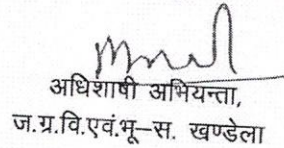 अधिशाषी अभियन्ता,
ज.ग्र.वि.एवं.भू–स. खण्डेला